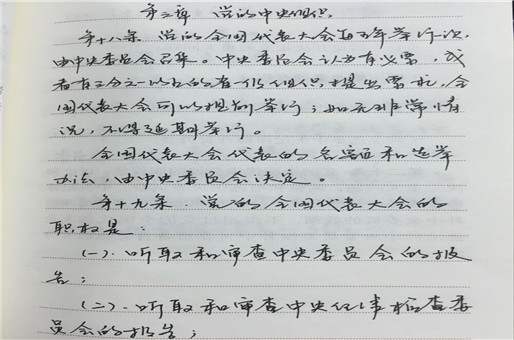 第三章 党的中央组织
第十八条 党的全国代表大会每五年举行一次,
由中央委员会召集。中央委员会认为有必要,或
者有三分之一以上的省一级组织提出要求,全
国代表大会可以提前举行;如无非常情
况,不得延期举行。
全国代表大会代表的名额和选举
办法,由中央委员会决定。
第十九条 党的全国代表大会的
职权是:
(一)听取和审查中央委员会的报
告;
(二)听取和审查中央纪律检查委
员会的报告;